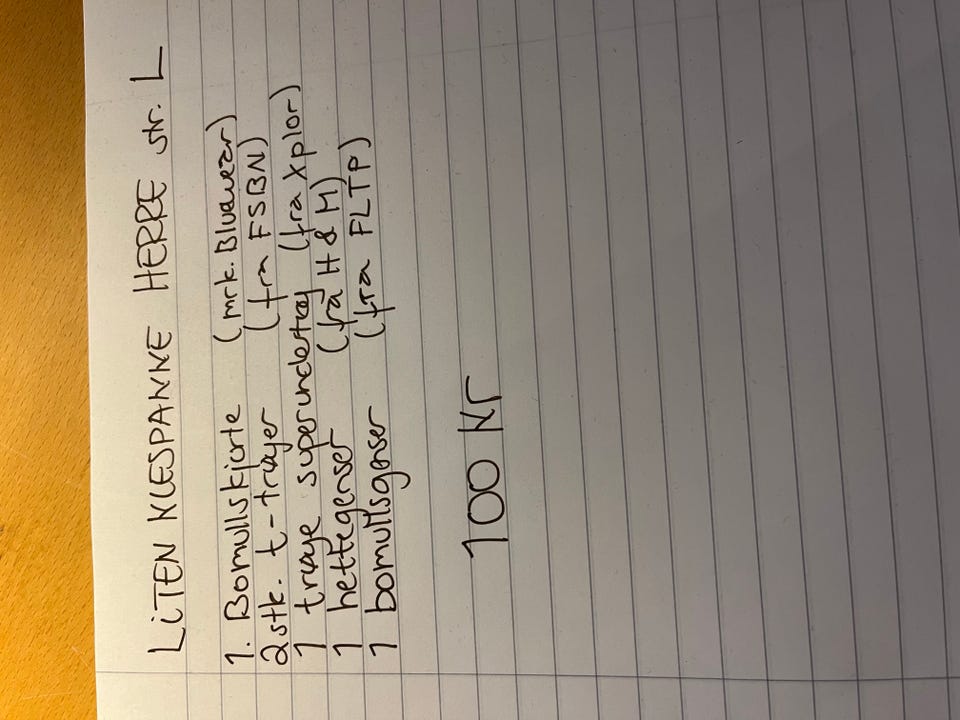 LiTEN KLESPANNE HERRE str. L
1. Bomullskjorte (mrk. Bluwear)
2stk. t-trøyer (fra FSBN)
1 trøye superundertøy (fra Xplor)
1 hettegenser (fra H & M)
1 bomullsgenser (fra FLTP)
100 Kr